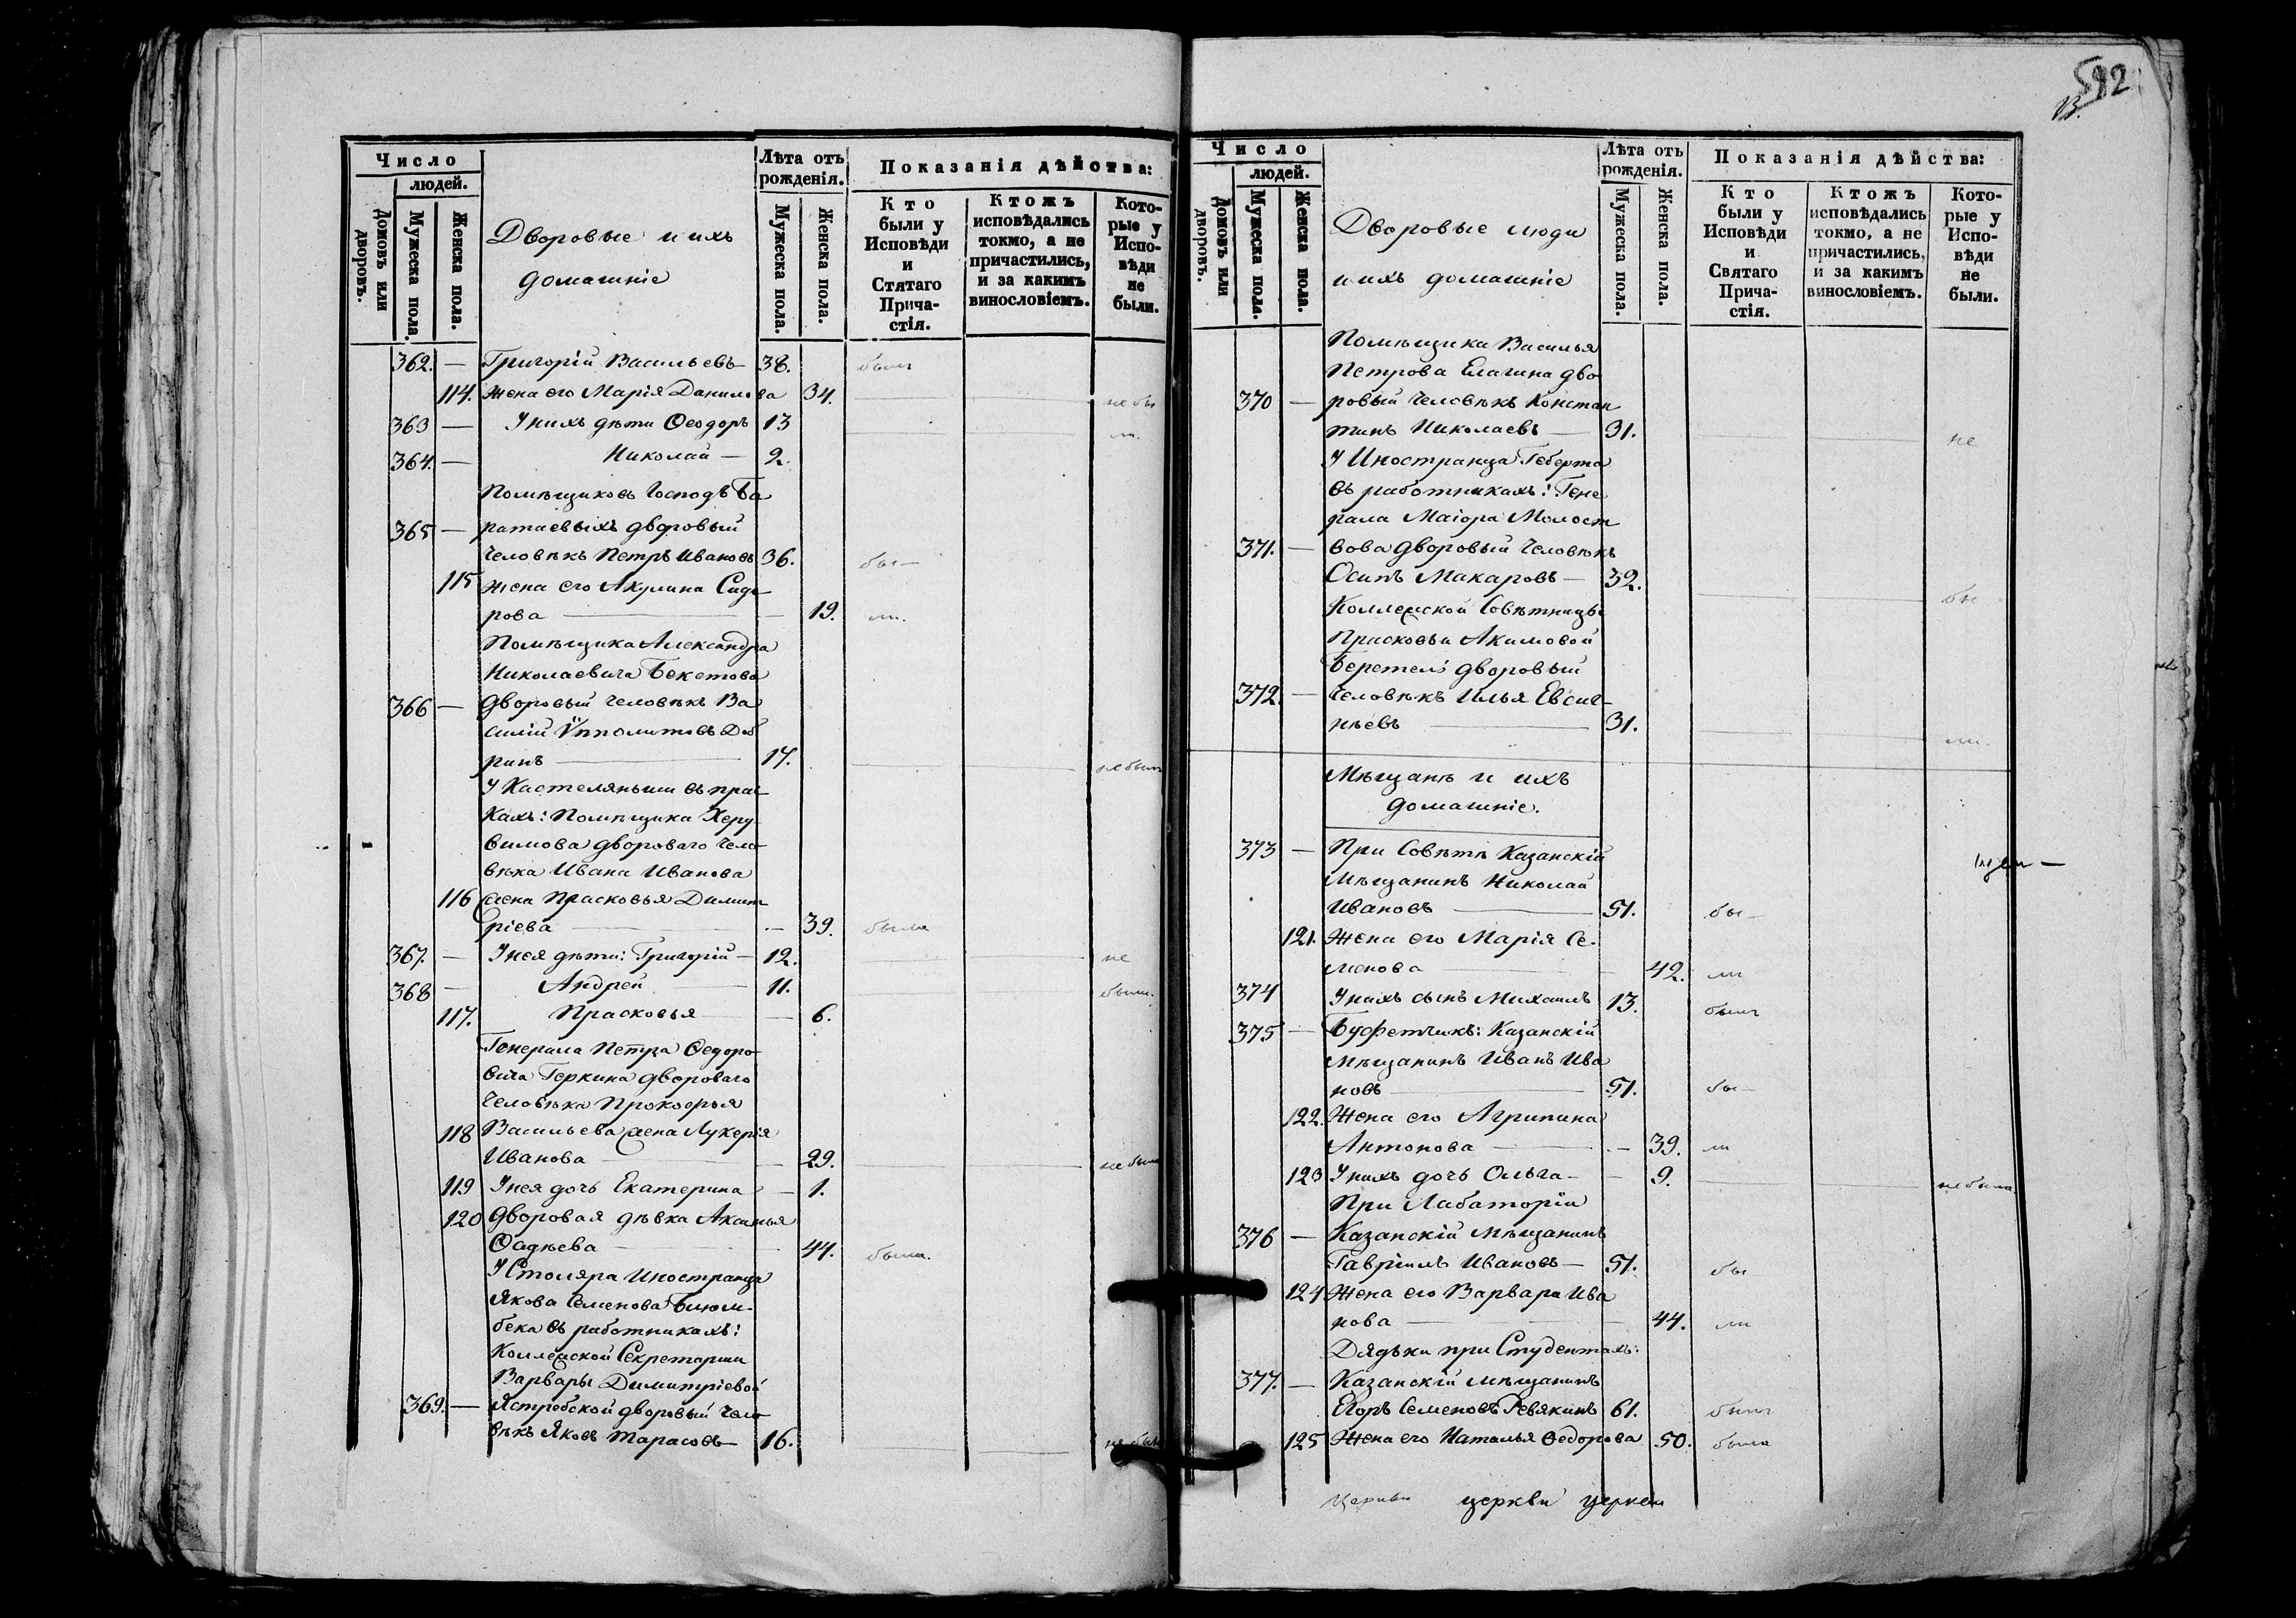 592
Число
людей.
Домовъ или дворовъ.
Мужеска пола.
Женска пола.
Дворовые и ихъ
домашніе
Лѣта отъ
рожденія.
Мужеска пола.
Женска пола.
Показанія дѣйства:
Кто
были у
Исповѣди
и
Стятаго
Прича-
стія.
Ктожъ
исповѣдались
токмо, а не
причастились,
и за какимъ
винословіемъ.
Кото-
рые у
Испо-
вѣди
не
были.
362. — Григорій Васильевъ — 38. былъ
114. Жена его Марія Данилова 34. не бы
363 — У нихъ дѣти Ѳеодоръ 13 ли.
364. — Николай — 2.
Помѣщиковъ Господъ Ба
365 — ратаевыхъ дворовый
Человѣкъ Петръ Ивановъ 36. бы —
115 Жена его Акулина Сидо
рова — 19. ли.
Помѣщика Александра
Николаевича Бекетова
366 — дворовый Человѣкъ Ва
силій Ѵпполитовъ Доб
ринъ — 17. не былъ
У Кастелянши въ прач
кахъ: Помѣщика Херу
вимова двороваго Чело
вѣка Ивана Иванова
116 жена Прасковья Димит
ріева — 39. была
367. — У нея дѣти: Григорій — 12. не
368 — Андрей — 11. были.
117. Прасковья — 6.
Генерала Петра Ѳедоро
вича Геркина двороваго
Человѣка Прокофья
118 Васильева жена Лукерія
Иванова — 29. не была
119 У нея дочь Екатерина — 1.
120 Дворовая дѣвка Аксинья
Ѳадѣева — 44. была.
У Столяра Иностранца
Якова Семенова Блюм-
бека въ работникахъ:
Коллежской Секретарши
Варвары Димитріевой
369. — Ястребской дворовый Чело
вѣкъ Яковъ Тарасовъ — 16. не былъ
Число
людей.
Домовъ или дворовъ.
Мужеска пола.
Женска пола.
Дворовые люди
и ихъ домашніе
Лѣта отъ
рожденія.
Мужеска пола.
Женска пола.
Показанія дѣйства:
Кто
были у
Исповѣди
и
Святаго
Прича-
стія.
Ктожъ
исповѣдались
токмо, а не
причастились,
и за какимъ
винословіемъ.
Кото-
рые у
Испо-
вѣди
не
были.
Помѣщика Василья
Петрова Елагина дво
370 — ровый Человѣкъ Констан
тинъ Николаевъ — 31. не
У Иностранца Геберта
въ работникахъ: Гене
рала Маіора Молост
371. — вова дворовый Человѣкъ
Осипъ Макаровъ — 32. бы
Коллежской Совѣтницы
Прасковьи Акимовой
дворовый
372. — Человѣкъ Илья Евсиг-
нѣевъ — 31. ли.
Мѣщанъ и ихъ
домашніе.
373 — При Совѣтѣ Казанскій
Мѣщанинъ Николай
Ивановъ — 51. бы —
121. Жена его Марія Се-
менова — 42. ли
374 У нихъ сынъ Михаилъ 13. былъ
375 — Буфетчикъ: Казанскій
Мѣщанинъ Иванъ Ива
новъ — 51. бы —
122. Жена его Агрипина
Антонова — 39. ли
123 У нихъ дочь Ольга — 9. не была.
При Лабаторіи
376 — Казанскій Мѣщанинъ
Гавріилъ Ивановъ — 51. бы
124 Жена его Варвара Ива
нова — 44. ли
Дядьки при Студентахъ:
377. — Казанскій мѣщанинъ
Егоръ Семеновъ Ревякинъ 61. былъ
125 Жена его Наталья Ѳедорова 50. была
Церкви церкви церкви